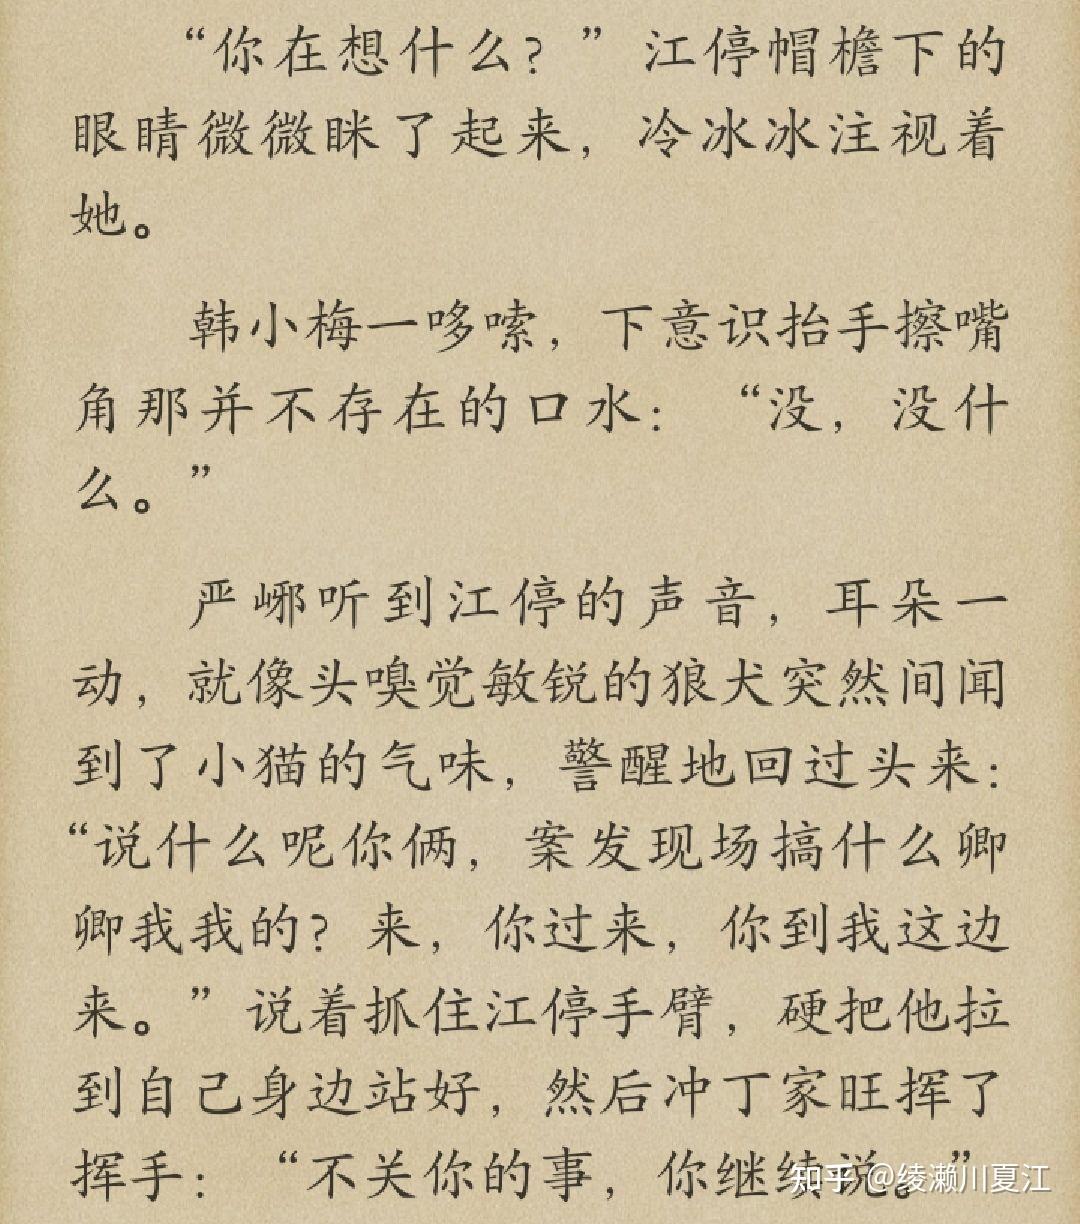 “你在想什么？”江停帽檐下的
眼睛微微眯了起来，冷冰冰注视着
她。
韩小梅一哆嗦，下意识抬手擦嘴
角那并不存在的口水：“没，没什
么。”
严峫听到江停的声音，耳朵一
动，就像头嗅觉敏锐的狼犬突然间闻
到了小猫的气味，警醒地回过头来：
“说什么呢你俩，案发现场搞什么卿
卿我我的？来，你过来，你到我这边
来。”说着抓住江停手臂，硬把他拉
到自己身边站好，然后冲丁家旺挥了
挥手：“不关你的事，你继续说。”
知乎 @绫濑川夏江